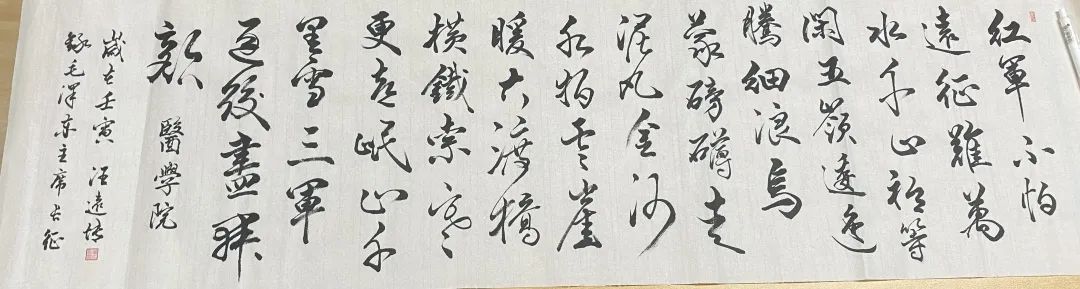 紅軍不怕
遠征難萬
水千山祗等
閑五嶺逶迤
騰細浪烏
蒙磅礴走
泥丸金沙
水拍雲崖
暖大渡橋
橫鐵索寒
更喜岷山千
里雪三軍
過後盡開
顏 醫學院
歲在壬寅 汪遠
錄毛澤東主席長征